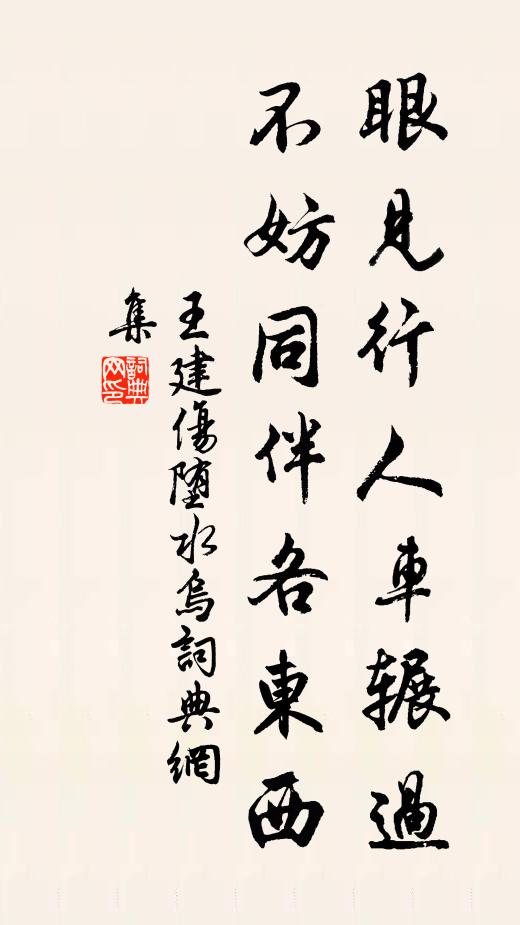 眼見行人車辗過
不妨同伴各東西
王建傷堕水烏詞典網
集
詞典網印